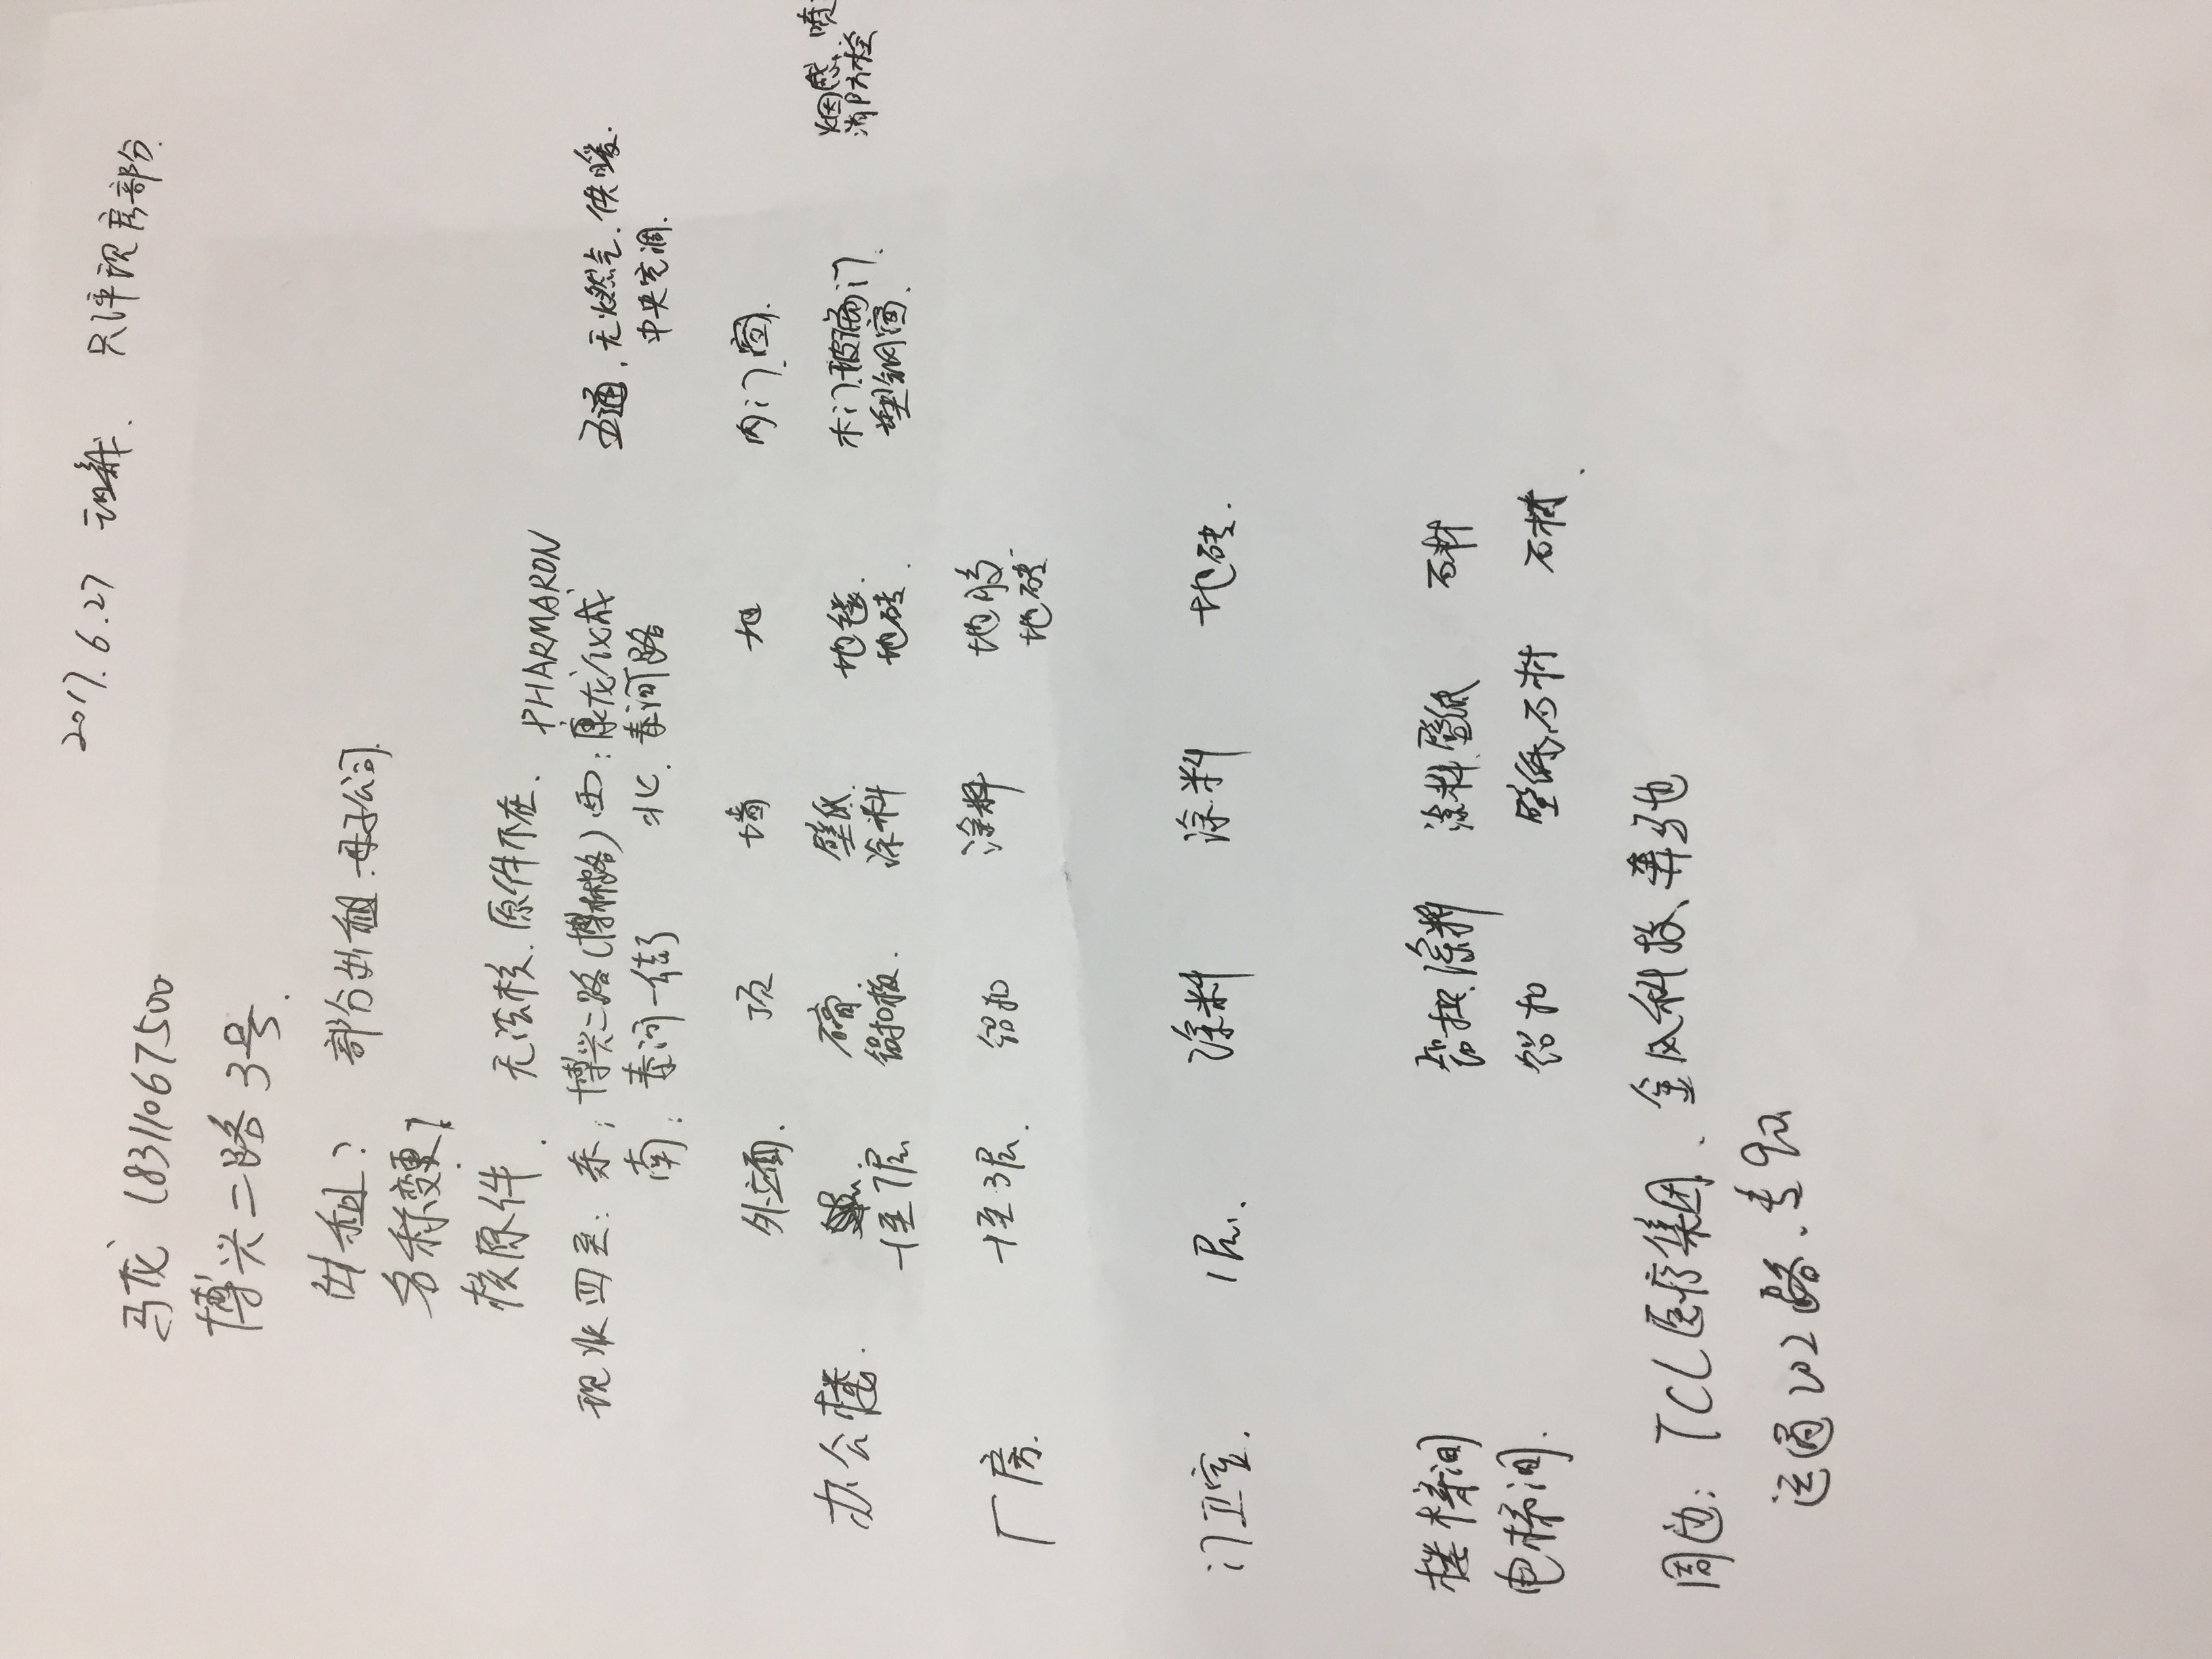 2017.6.27 只评现房部分.
马龙 18311067500
博兴二路3号.
出租? 部分出租.母子公司.
名称变更?
核原件. 无法核.原件不在.
PHARMARON
现状四至: 东: 博兴二路 西: 康龙化成
南: 泰河一街 北. 泰河路
五通, 无燃气.供暖.
中央空调.
外立面. 顶 墙 地 内门窗.
办公楼. 1至7层 石膏 铝扣板. 壁纸. 涂料 地毯 地砖. 木门.玻璃门. 塑钢窗. 烟感. 喷 消防栓
厂房. 1至3层. 铝扣 涂料 地胶 地砖.
门卫室. 1层. 涂料 涂料 地砖.
楼梯间 涂料 涂料.壁纸 石材
电梯间. 铝扣 壁纸.石材 石材.
周边: TCL医疗集团、金风科技、奔驰
运通202路.专92